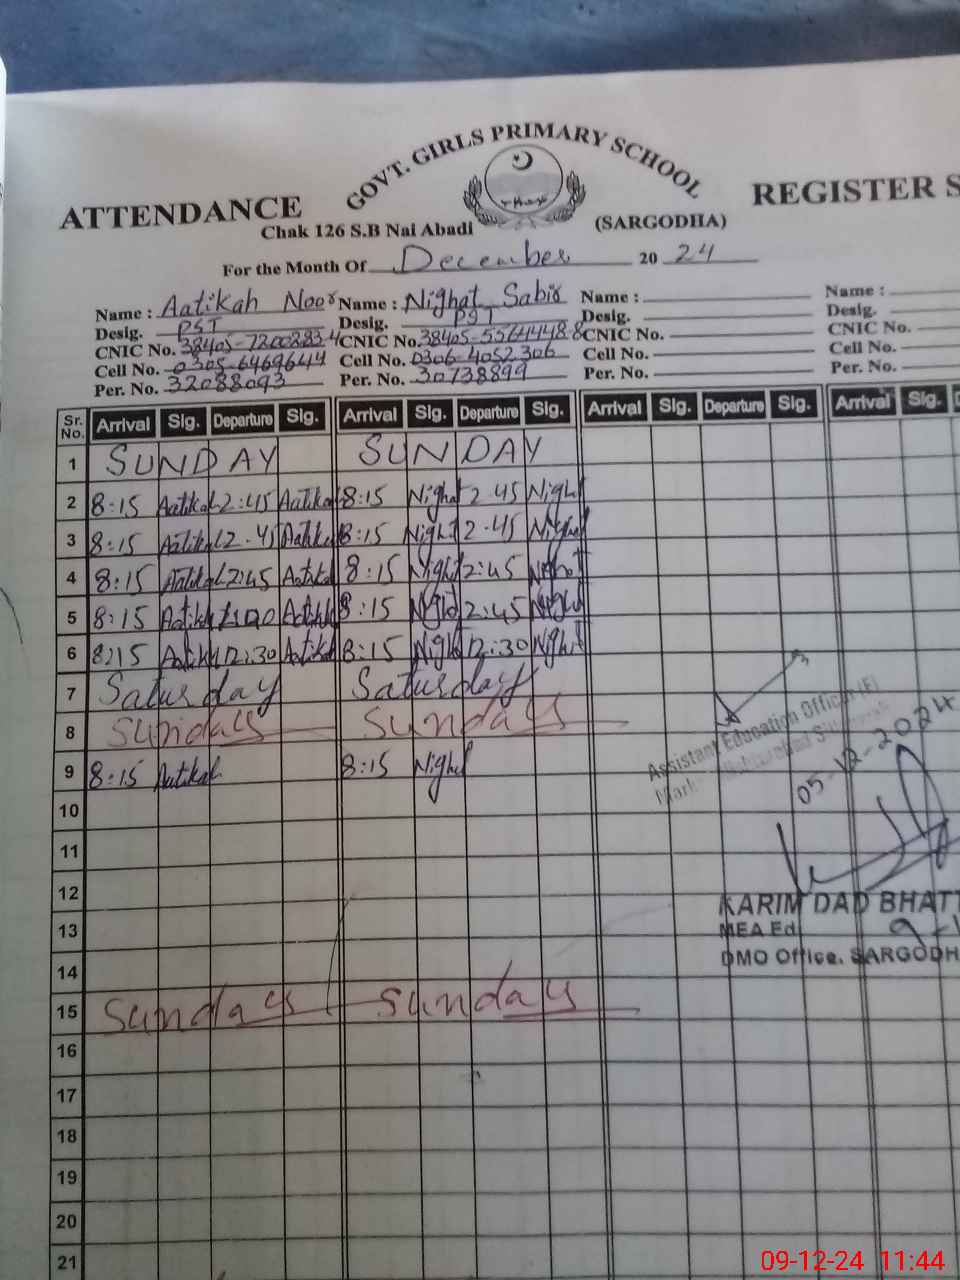 GOVT. GIRLS PRIMARY SCHOOL
ATTENDANCE REGISTER S
Chak 126 S.B Nai Abadi (SARGODHA)
For the Month Of December 20 24
Name : Aatikah Noor Name : Nighat Sabir Name : Name :
Desig. PST Desig. PST Desig. Desig.
CNIC No. 38405-7200283-4 CNIC No. 38405-5564448-8 CNIC No. CNIC No.
Cell No. 0305-6469644 Cell No. 0306-4052306 Cell No. Cell No.
Per. No. 32088093 Per. No. 30738899 Per. No. Per. No.
Sr. No. Arrival Sig. Departure Sig. Arrival Sig. Departure Sig. Arrival Sig. Departure Sig. Arrival Sig. D
1 SUNDAY SUNDAY
2 8:15 Aatikah 2:45 Aatikah 8:15 Nighat 2:45 Nighat
3 8:15 Aatikah 2:45 Aatikah 8:15 Nighat 2:45 Nighat
4 8:15 Aatikah 2:45 Aatikah 8:15 Nighat 2:45 Nighat
5 8:15 Aatikah Aatikah 8:15 Nighat 2:45 Nighat
6 8:15 Aatikah 12:30 Aatikah 8:15 Nighat 12:30 Nighat
7 Saturday Saturday
8 Sunday Sunday
Assistant Education Officer (F)
05-12-2024
9 8:15 Aatikah 8:15 Nighat
10
11
12
KARIM DAD BHATT
13
MEA Ed
DMO Office, SARGODH
14
15 Sunday Sunday
16
17
18
19
20
21
09-12-24 11:44